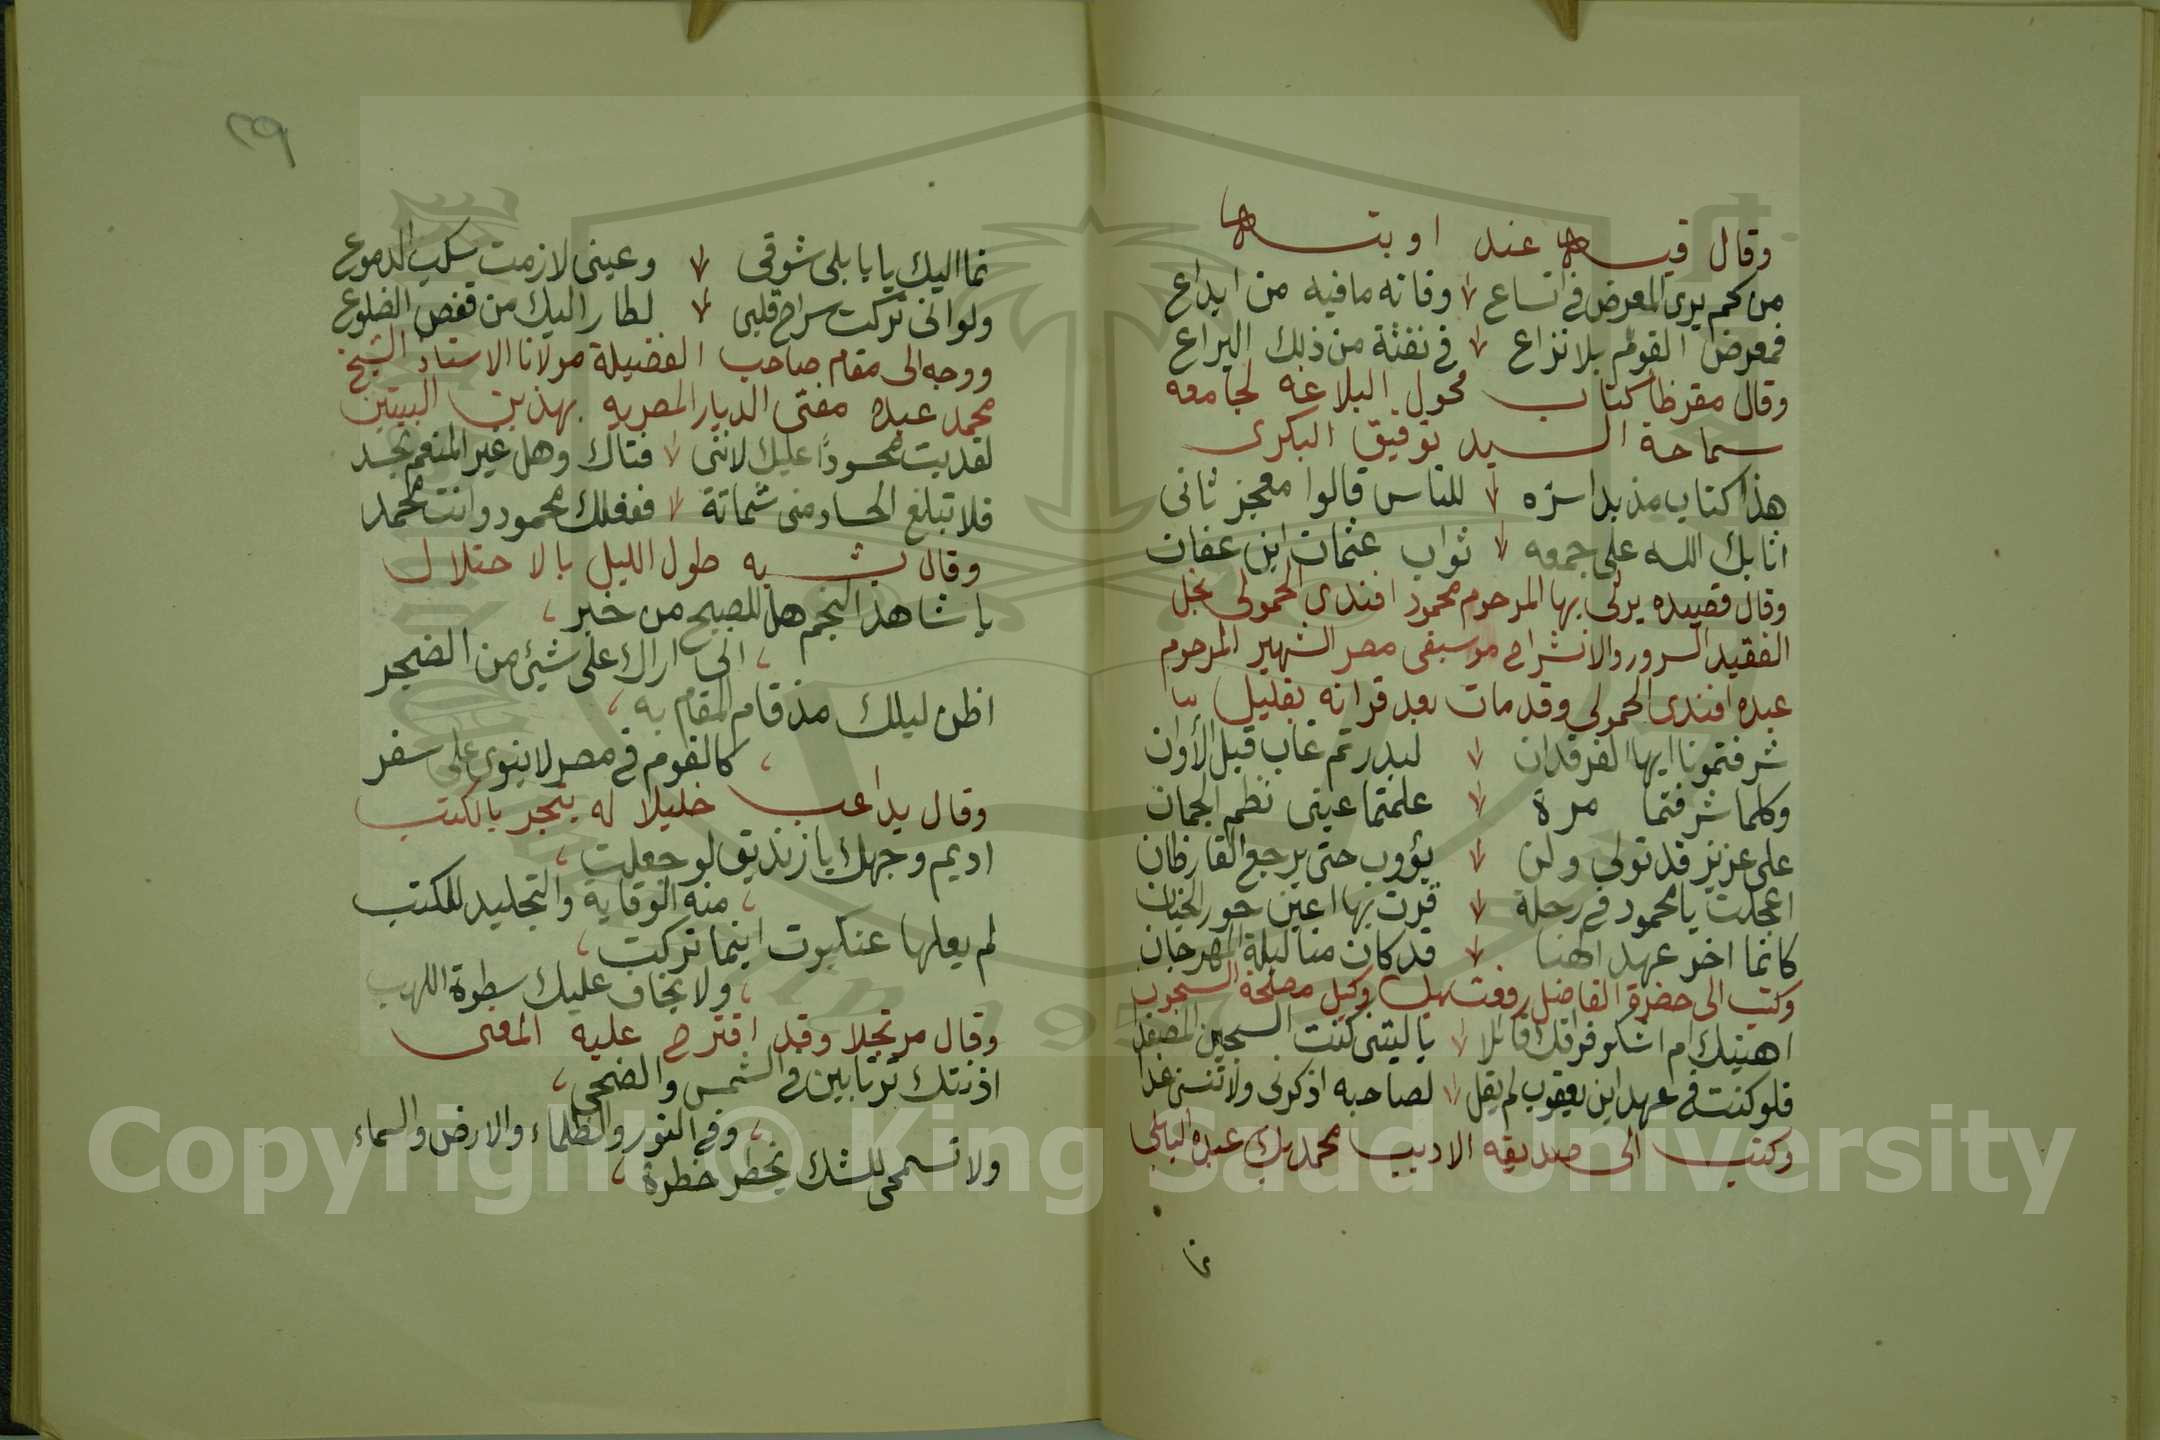 وقال فيها عند اوبتها
من كم يرى المعرض فى اتساع وفاته ما فيه من ابداع
فمعرض القوم بلا نزاع فى نفثة من ذلك اليراع
وقال مقرظا كتاب فحول البلاغه لجامعه
سماحة السيد توفيق البكرى
هذا كتاب مذ بدا سره للناس قالوا معجز ثانى
اثابك الله على جمعه ثواب عثمان ابن عفان
وقال قصيده يرثى بها المرحوم محمود افندى الحمولى نجل
الفقيد السرور والانشراح موسيقى مصر الشهير المرحوم
عبده افندى الحمولى وقد مات بعد قرانه بقليل
شرفتمونا ايها الفرقدان لبدر تم غاب قبل الأوان
وكلما شرفتما مرة علمتما عينى نظم الجمان
على عزيز قد تولى ولن يؤوب حتى يرجع القارظان
اعجلت يا محمود فى رحلة قرت بها اعين حور الجنان
كانما اخر عهد الهنا قد كان منا ليلة المهرجان
وكتب الى حضرة الفاضل رفعت بك وكيل مصلحة السجون
اهنيك ام اشكو فراقك قائلا يا ليتنى كنت السجين المصفدا
فلو كنت فى عهد ابن يعقوب لم يقل لصاحبه اذكرنى ولا تنسنى غدا
وكتب الى صديقه الاديب محمد بك عبده البابلى
نما
٢٩
نما اليك يا بابلى شوقى وعينى لازمت سكب الدموع
ولو انى تركت سراح قلبى لطار اليك من قفص الضلوع
ووجه الى مقام صاحب الفضيلة مولانا الاستاذ الشيخ
محمد عبده مفتى الديار المصريه بهذين البيتين
لقد بت محسودًا عليك لاننى فتاك وهل غير المنعم يحسد
فلا تبلغ الحساد منى شماتة ففعلك محمود وانت محمد
وقال يشبه طول الليل بالاحتلال
يا شاهد النجم هل للصبح من خبر
انى اراك على شيئ من الضجر
اظن ليلك مذ قام المقام به
كالقوم فى مصر لا ينوى على سفر
وقال يداعب خليلا له يتجر بالكتب
اديم وجهك يا زنديق لو جعلت
منه الوقاية والتجليد للكتب
لم يعلها عنكبوت اينما تركت
ولا يخاف عليك سطوة اللهب
وقال مرتجلا وقد اقترح عليه المعنى
اذنتك ترتابين فى الشمس والضحى
وفى النور والظلماء والارض والسماء
ولا تسمحى للشك يخطر خطرة
Copyright © King Saud University
1957